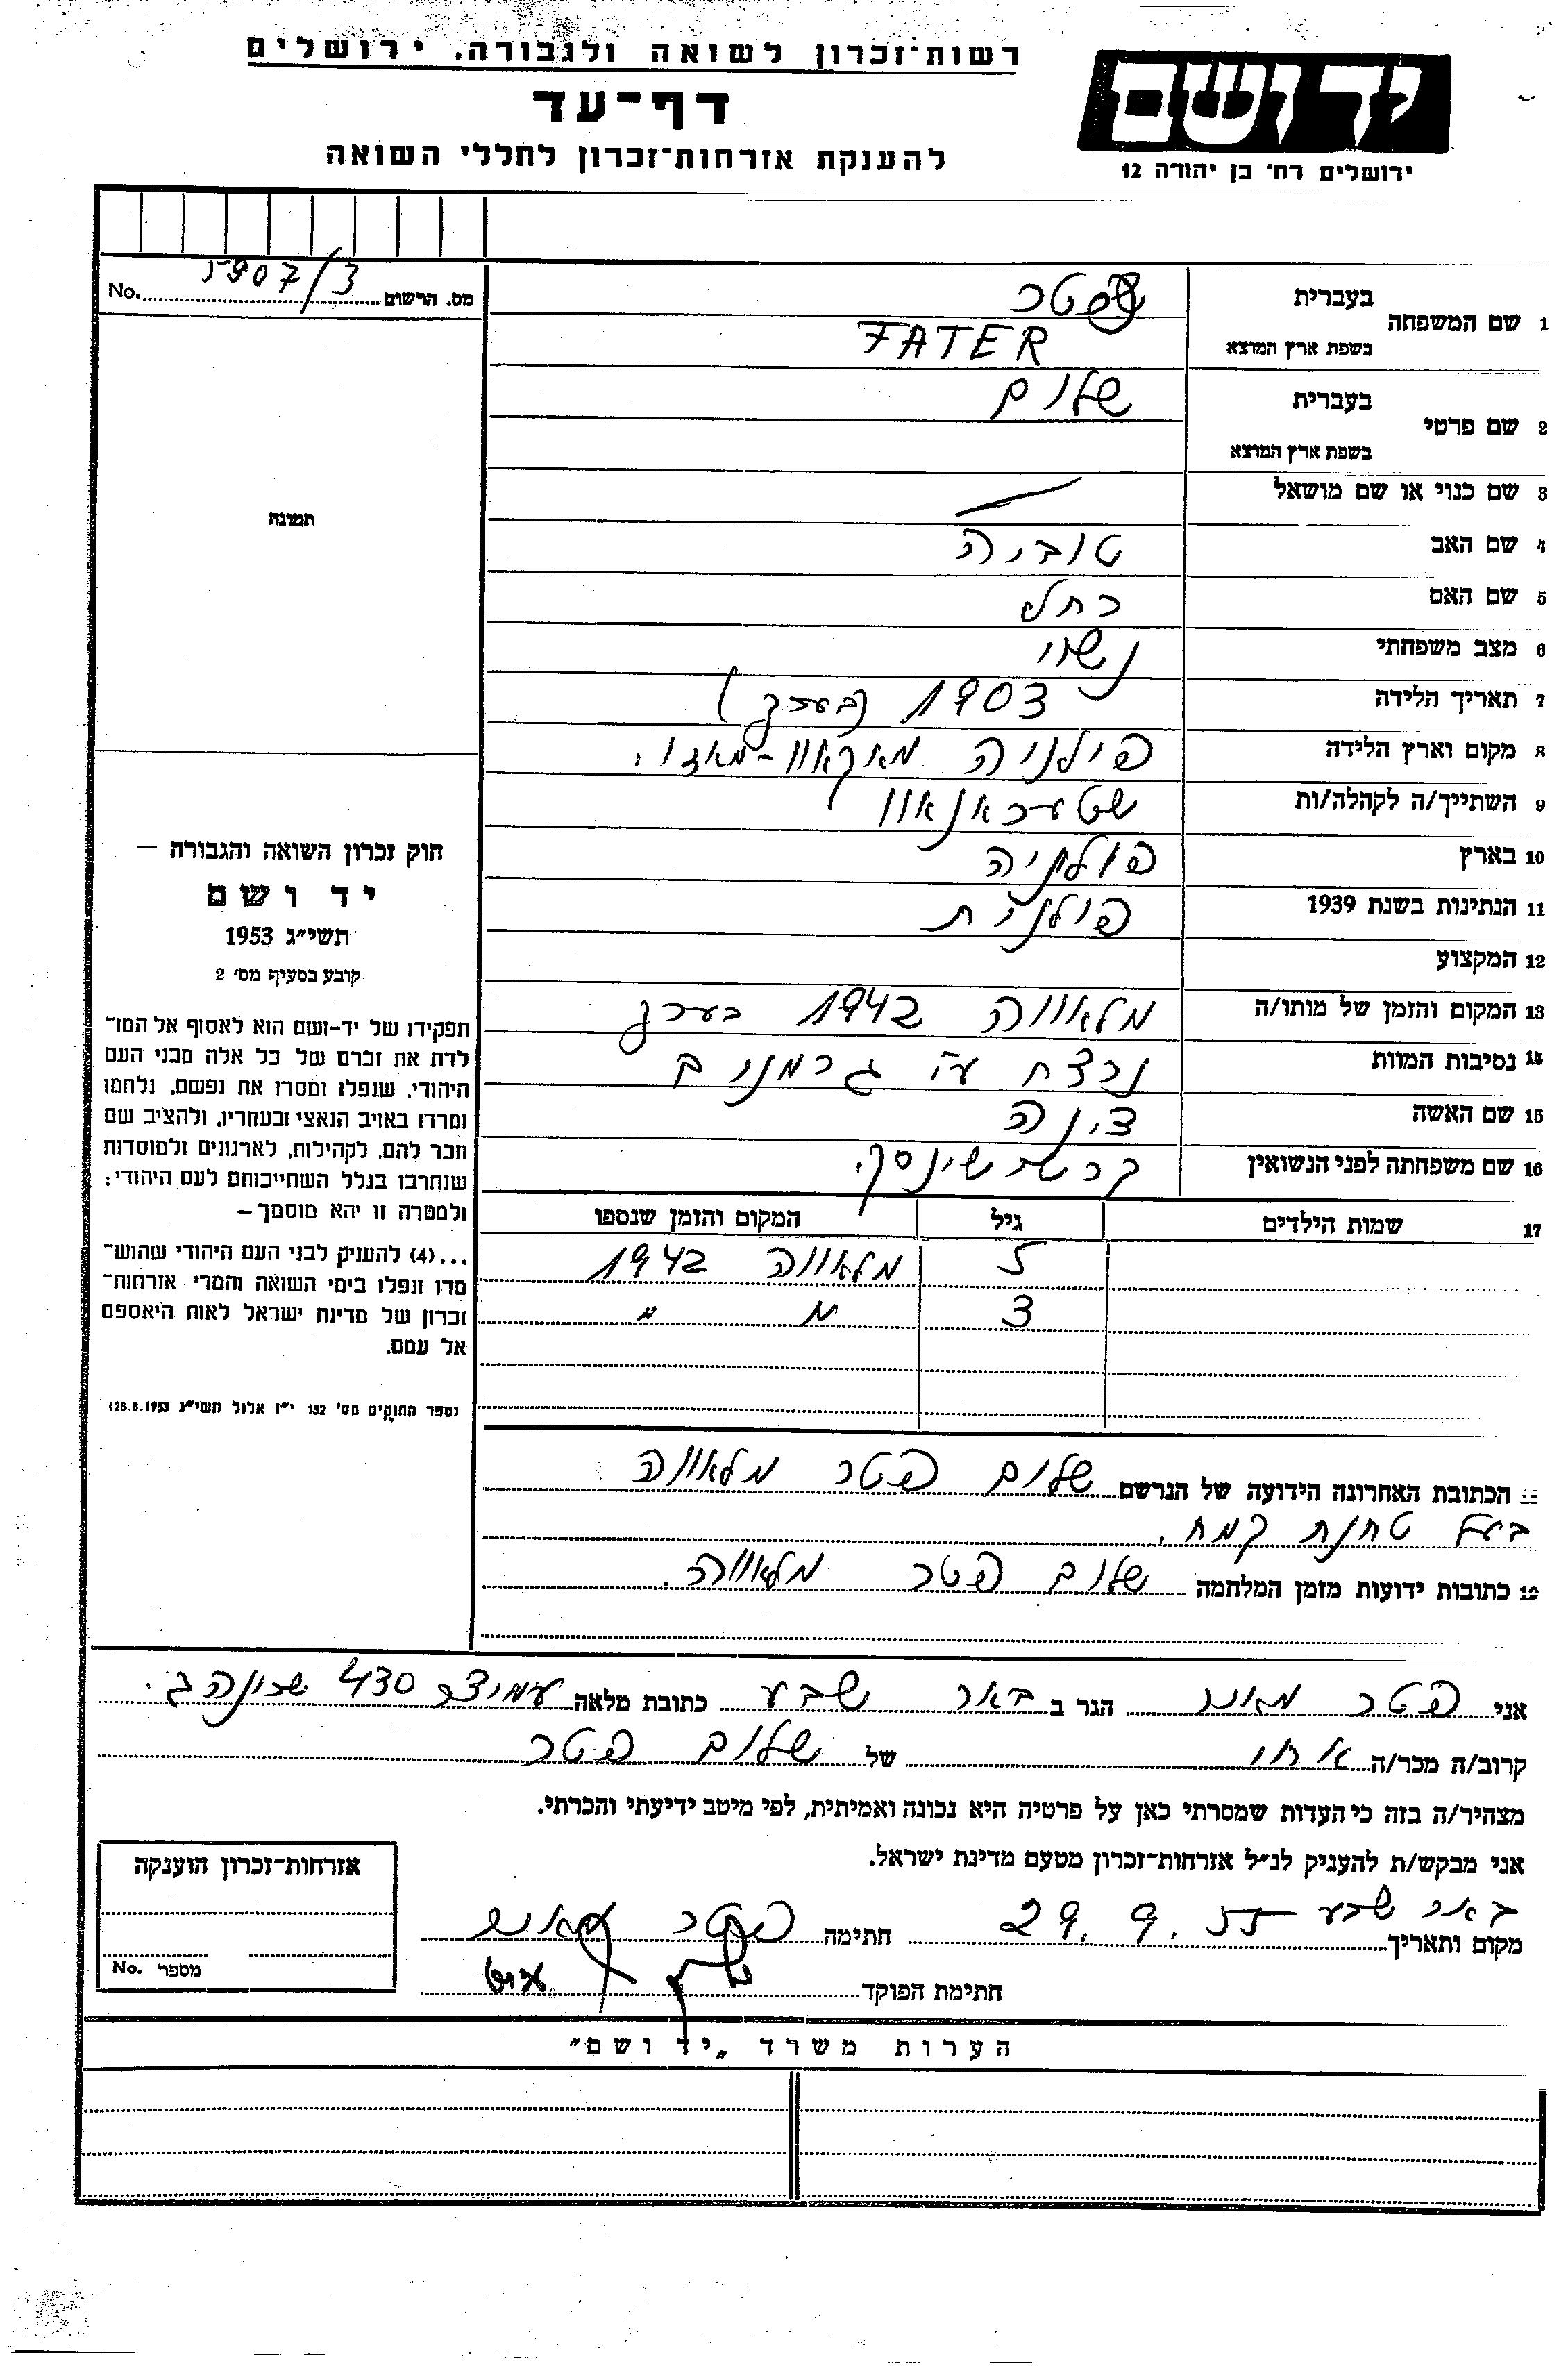 רשות־זכרון לשואה ולגבורה, ירושלים
דף־עד
להענקת אזרחות־זכרון לחללי השואה
יד ושם
ירושלים רח' בן יהודה 12
מס. הרשום 5907/3 No.
1 שם המשפחה בעברית פטר
בשפת ארץ המוצא FATER
2 שם פרטי בעברית שלום
בשפת ארץ המוצא
3 שם כנוי או שם מושאל
4 שם האב טוביה
5 שם האם רחל
6 מצב משפחתי נשוי
7 תאריך הלידה 1903 (בערך)
8 מקום וארץ הלידה פולניה מאקאוו-מאזוו.
9 השתייך/ה לקהלה/ות
10 בארץ פולניה
11 הנתינות בשנת 1939 פולנית
12 המקצוע
13 המקום והזמן של מותו/ה מלאווה 1942 בערך
14 נסיבות המוות נרצח ע"י גרמנים
15 שם האשה צינה
16 שם משפחתה לפני הנשואין
17 שמות הילדים גיל המקום והזמן שנספו
5 מלאווה 1942
3 " "
הכתובת האחרונה הידועה של הנרשם שלום פטר מלאווה
בעל טחנת קמח.
19 כתובות ידועות מזמן המלחמה שלום פטר מלאווה.
תמונה
חוק זכרון השואה והגבורה –
יד ושם
תשי"ג 1953
קובע בסעיף מס' 2
תפקידו של יד-ושם הוא לאסוף אל המו־
לדת את זכרם של כל אלה מבני העם
היהודי, שנפלו ומסרו את נפשם, נלחמו
ומרדו באויב הנאצי ובעוזריו, ולהציב שם
וזכר להם, לקהילות, לארגונים ולמוסדות
שנחרבו בגלל השתייכותם לעם היהודי;
ולמטרה זו יהא מוסמך –
...(4) להעניק לבני העם היהודי שהוש־
מדו ונפלו בימי השואה והמרי אזרחות־
זכרון של מדינת ישראל לאות היאספם
אל עמם.
(ספר החוקים מס' 132 י"ז אלול תשי"ג 28.8.1953)
אני פטר מאיר הגר ב באר שבע כתובת מלאה 430 שכונה ג.
קרוב/ה מכר/ה אחי של שלום פטר
מצהיר/ה בזה כי העדות שמסרתי כאן על פרטיה היא נכונה ואמיתית, לפי מיטב ידיעתי והכרתי.
אני מבקש/ת להעניק לנ"ל אזרחות־זכרון מטעם מדינת ישראל.
מקום ותאריך באר שבע 29.9.55 חתימה פטר
חתימת הפוקד
אזרחות־זכרון הוענקה
מספר No.
הערות משרד „יד ושם"